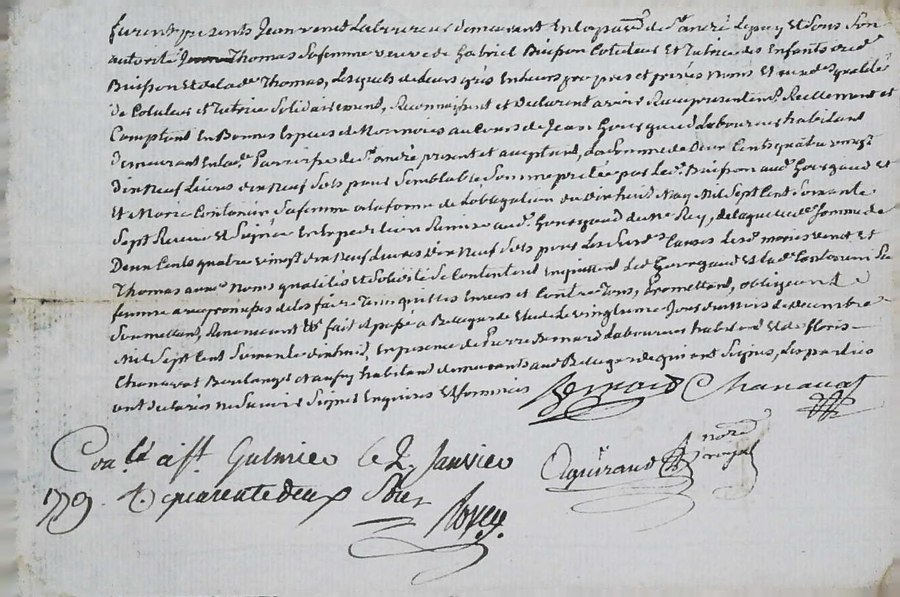 furent presents Jean venet Laboureur demeurant En la parr.e de S.t andré Le puy Et sous Son
autorité Thomas Sa femme veuve de Gabriel Buisson Cotuteur Et Tutrice des Enfants dud.
Buisson Et de lad.e Thomas, Lesquels de Leurs grés En Leurs propres et privés Noms Et aux d.s qualités
de Cotuteur et Tutrice Solidairement, Reconnoissent et Declarent avoir Receu presentem.t Reellement et
Comptant En Bonnes Especes de Monnoies au Cours de Jean Gourgaud Laboureur habitant
Demeurant En lad. Parroisse de S.t andré, present et acceptant, La Somme de Deux Cents quatre vingt
Dix Neuf Livres dix Neuf Sols pour Semblable Somme prétée par Led.t Buisson aud.t Gourgaud et
Et Marie Sa femme a la forme de L'obligation du Dix huit May Mil Sept Cent Soixante
Sept Receue et Signée En Expedition Remise aud.t Gourgaud de M.e Rey, de laquelle d.e Somme de
Deux Cents quatre vingt dix Neuf Livres Dix Neuf Sols pour Les Susd.s Causes Lesd.s mariés venet et
Thomas auxd. Noms qualités et Solidité Se Contentent En quittent Led.t Gourgaud et lad.e Sa
femme avec promesse de les faire Tenir quittes Envers et Contre Tous, Promettant, obligeant
Soumettant, Renonceant &c fait et passé a Bellegarde Etude Le vingt Jour du mois de decembre
Mil Sept Cent Soixante dix huit, En presence de Pierre Bernard Laboureur habitant et de floris
Chanavat Boulanger et aussy habitant demeurants aud. Bellegarde qui ont Signés, Les parties
ont declarés ne Savoir Signer Enquises Et sommées Bernard Chanavat
Con.lé à S.t Galmier le 2. Janvier Aguiraud no.re royal
1779. R. quarente deux Sols
Rovey